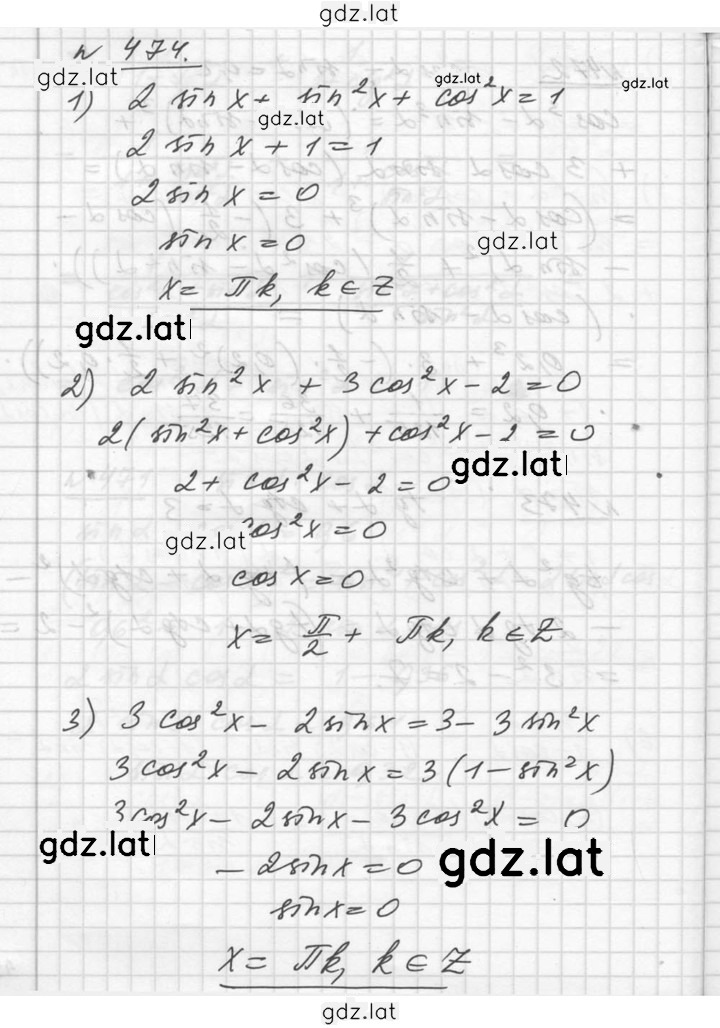 gdz.lat
№ 474.
gdz.lat gdz.lat gdz.lat
1) 2 sin x + sin²x + cos²x = 1
gdz.lat
2 sin x + 1 = 1
2 sin x = 0
sin x = 0
gdz.lat
x = πk, k ∈ Z
gdz.lat
2) 2 sin²x + 3 cos²x - 2 = 0
2(sin²x + cos²x) + cos²x - 2 = 0
gdz.lat
2 + cos²x - 2 = 0
cos²x = 0
gdz.lat
cos x = 0
x = π/2 + πk, k ∈ Z
3) 3 cos²x - 2 sin x = 3 - 3 sin²x
3 cos²x - 2 sin x = 3(1 - sin²x)
3 cos²x - 2 sin x - 3 cos²x = 0
gdz.lat gdz.lat
- 2 sin x = 0
sin x = 0
x = πk, k ∈ Z
gdz.lat